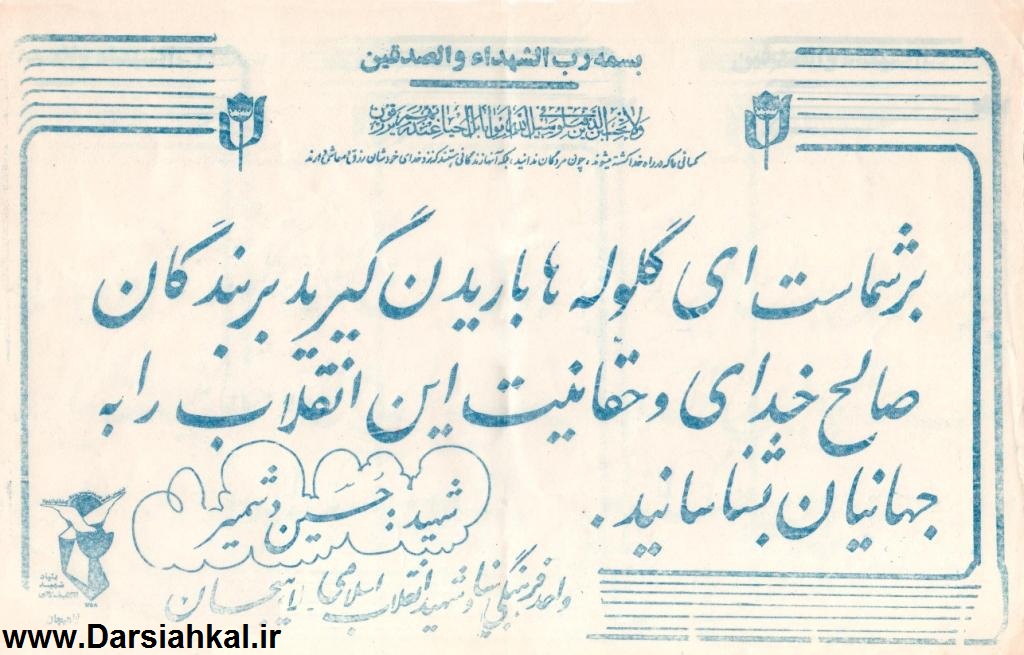 بسمه رب الشهداء والصدقین
ولا تحسبن الذین قتلوا فی سبیل الله امواتا بل احیاء عند ربهم یرزقون
کسانی را که در راه خدا کشته میشوند، چون مردگان ندانید، بلکه آنها زندگانی هستند که نزد خدای خودشان رزق و معاش میخورند
بر شماست ای گلوله ها باریدن گیرید بر بندگان
صالح خدای و حقانیت این انقلاب را به
جهانیان بشناسانید.
شهید: حسین دشمیر
واحد فرهنگی بنیاد شهید انقلاب اسلامی لاهیجان
بنیاد
شهید
انقلاب اسلامی
لاهیجان
www.Darsiahkal.ir